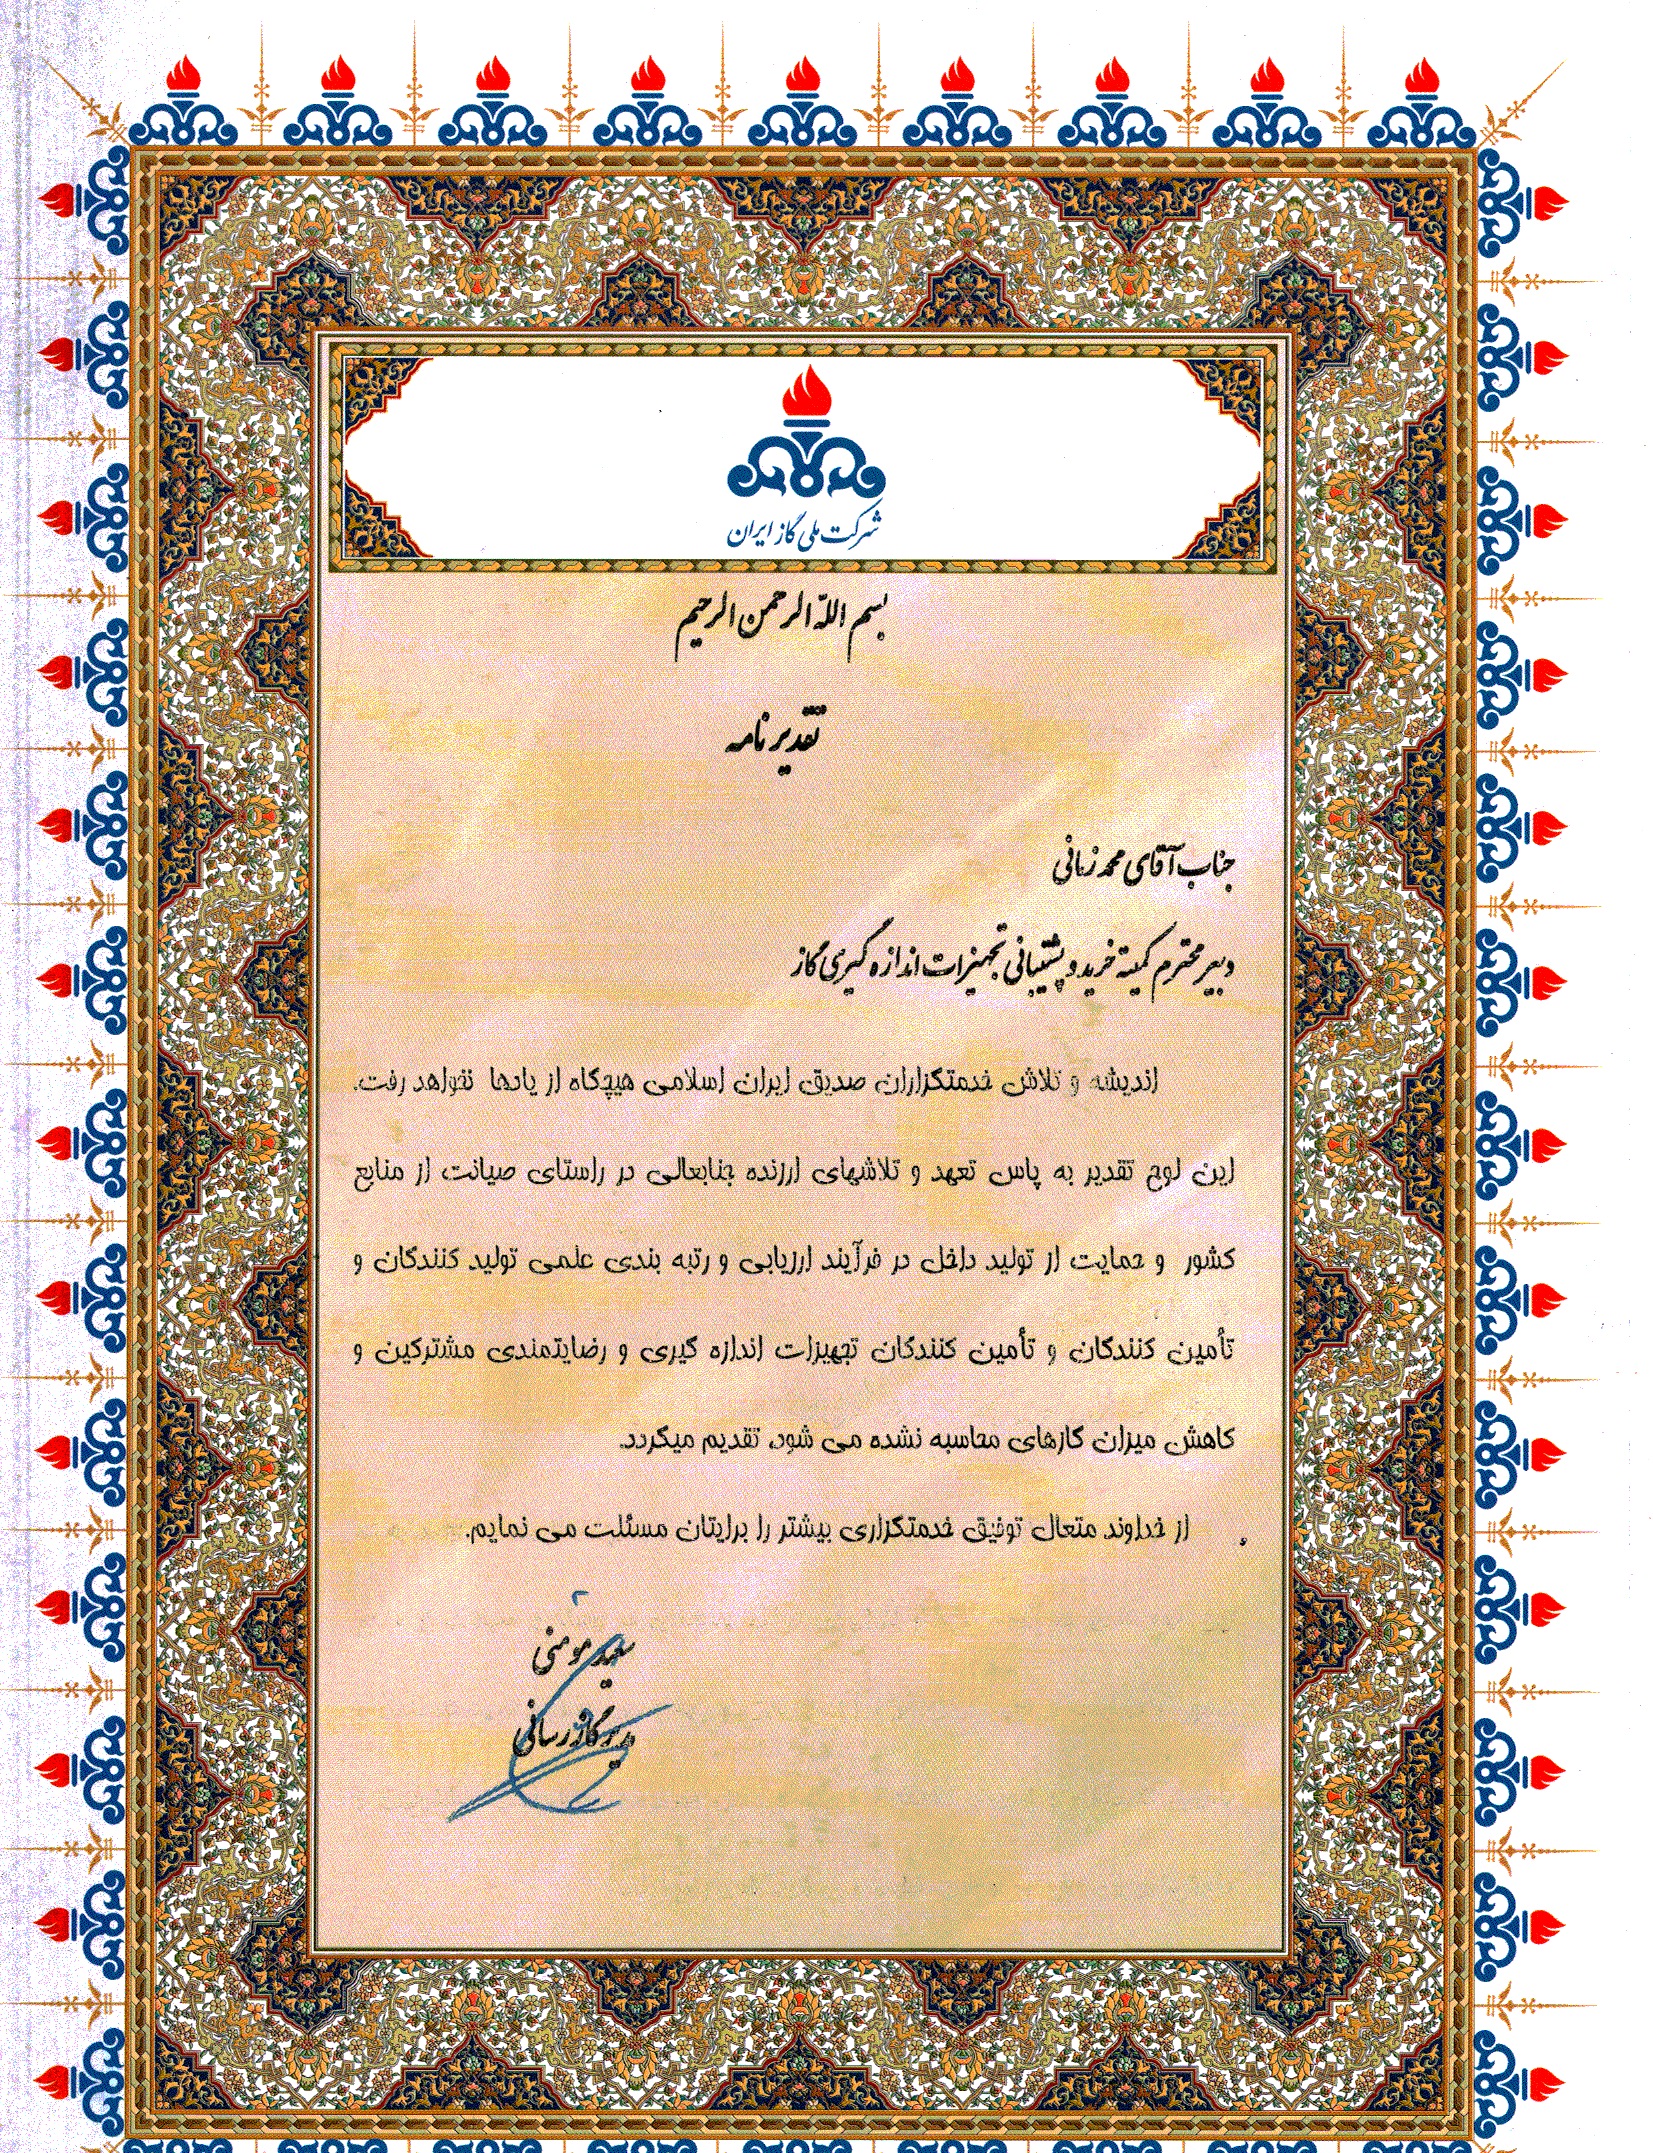 شرکت ملی گاز ایران
بسم الله الرحمن الرحیم
تقدیر نامه
جناب آقای محمد زمانی
دبیر محترم کمیته خرید و پشتیبانی تجهیزات اندازه گیری گاز
اندیشه و تلاش خدمتگزاران صدیق ایران اسلامی هیچگاه از یادها نخواهد رفت.
این لوح تقدیر به پاس تعهد و تلاشهای ارزنده جنابعالی در راستای صیانت از منابع
کشور و حمایت از تولید داخل در فرآیند ارزیابی و رتبه بندی علمی تولید کنندگان و
تأمین کنندگان و تأمین کنندگان تجهیزات اندازه گیری و رضایتمندی مشترکین و
کاهش میزان گازهای محاسبه نشده می شود، تقدیم میگردد.
از خداوند متعال توفیق خدمتگزاری بیشتر را برایتان مسئلت می نمایم.
سعید مومنی
مدیر گازرسانی